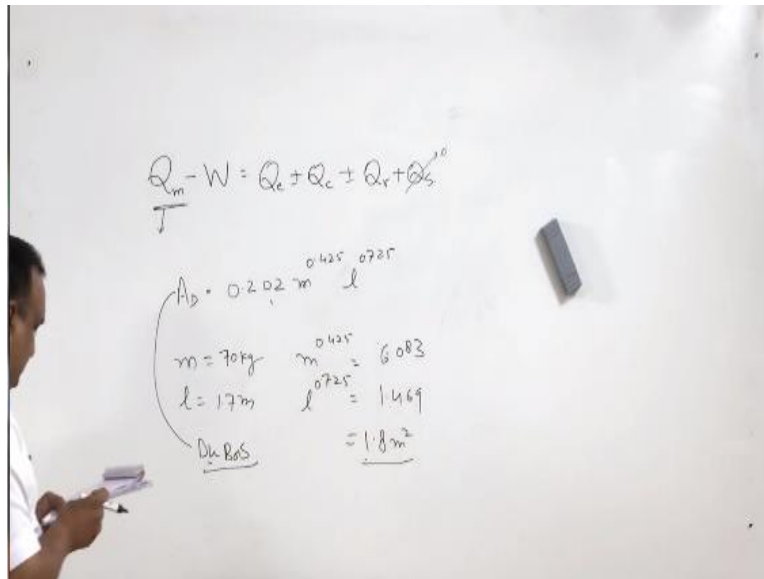 Qm - W = Qe ± Qc ± Qr + Qs 0
AD = 0.202 m^0.425 l^0.725
m = 70kg m^0.425 = 6.083
l = 1.7m l^0.725 = 1.469
DuBois = 1.8m²